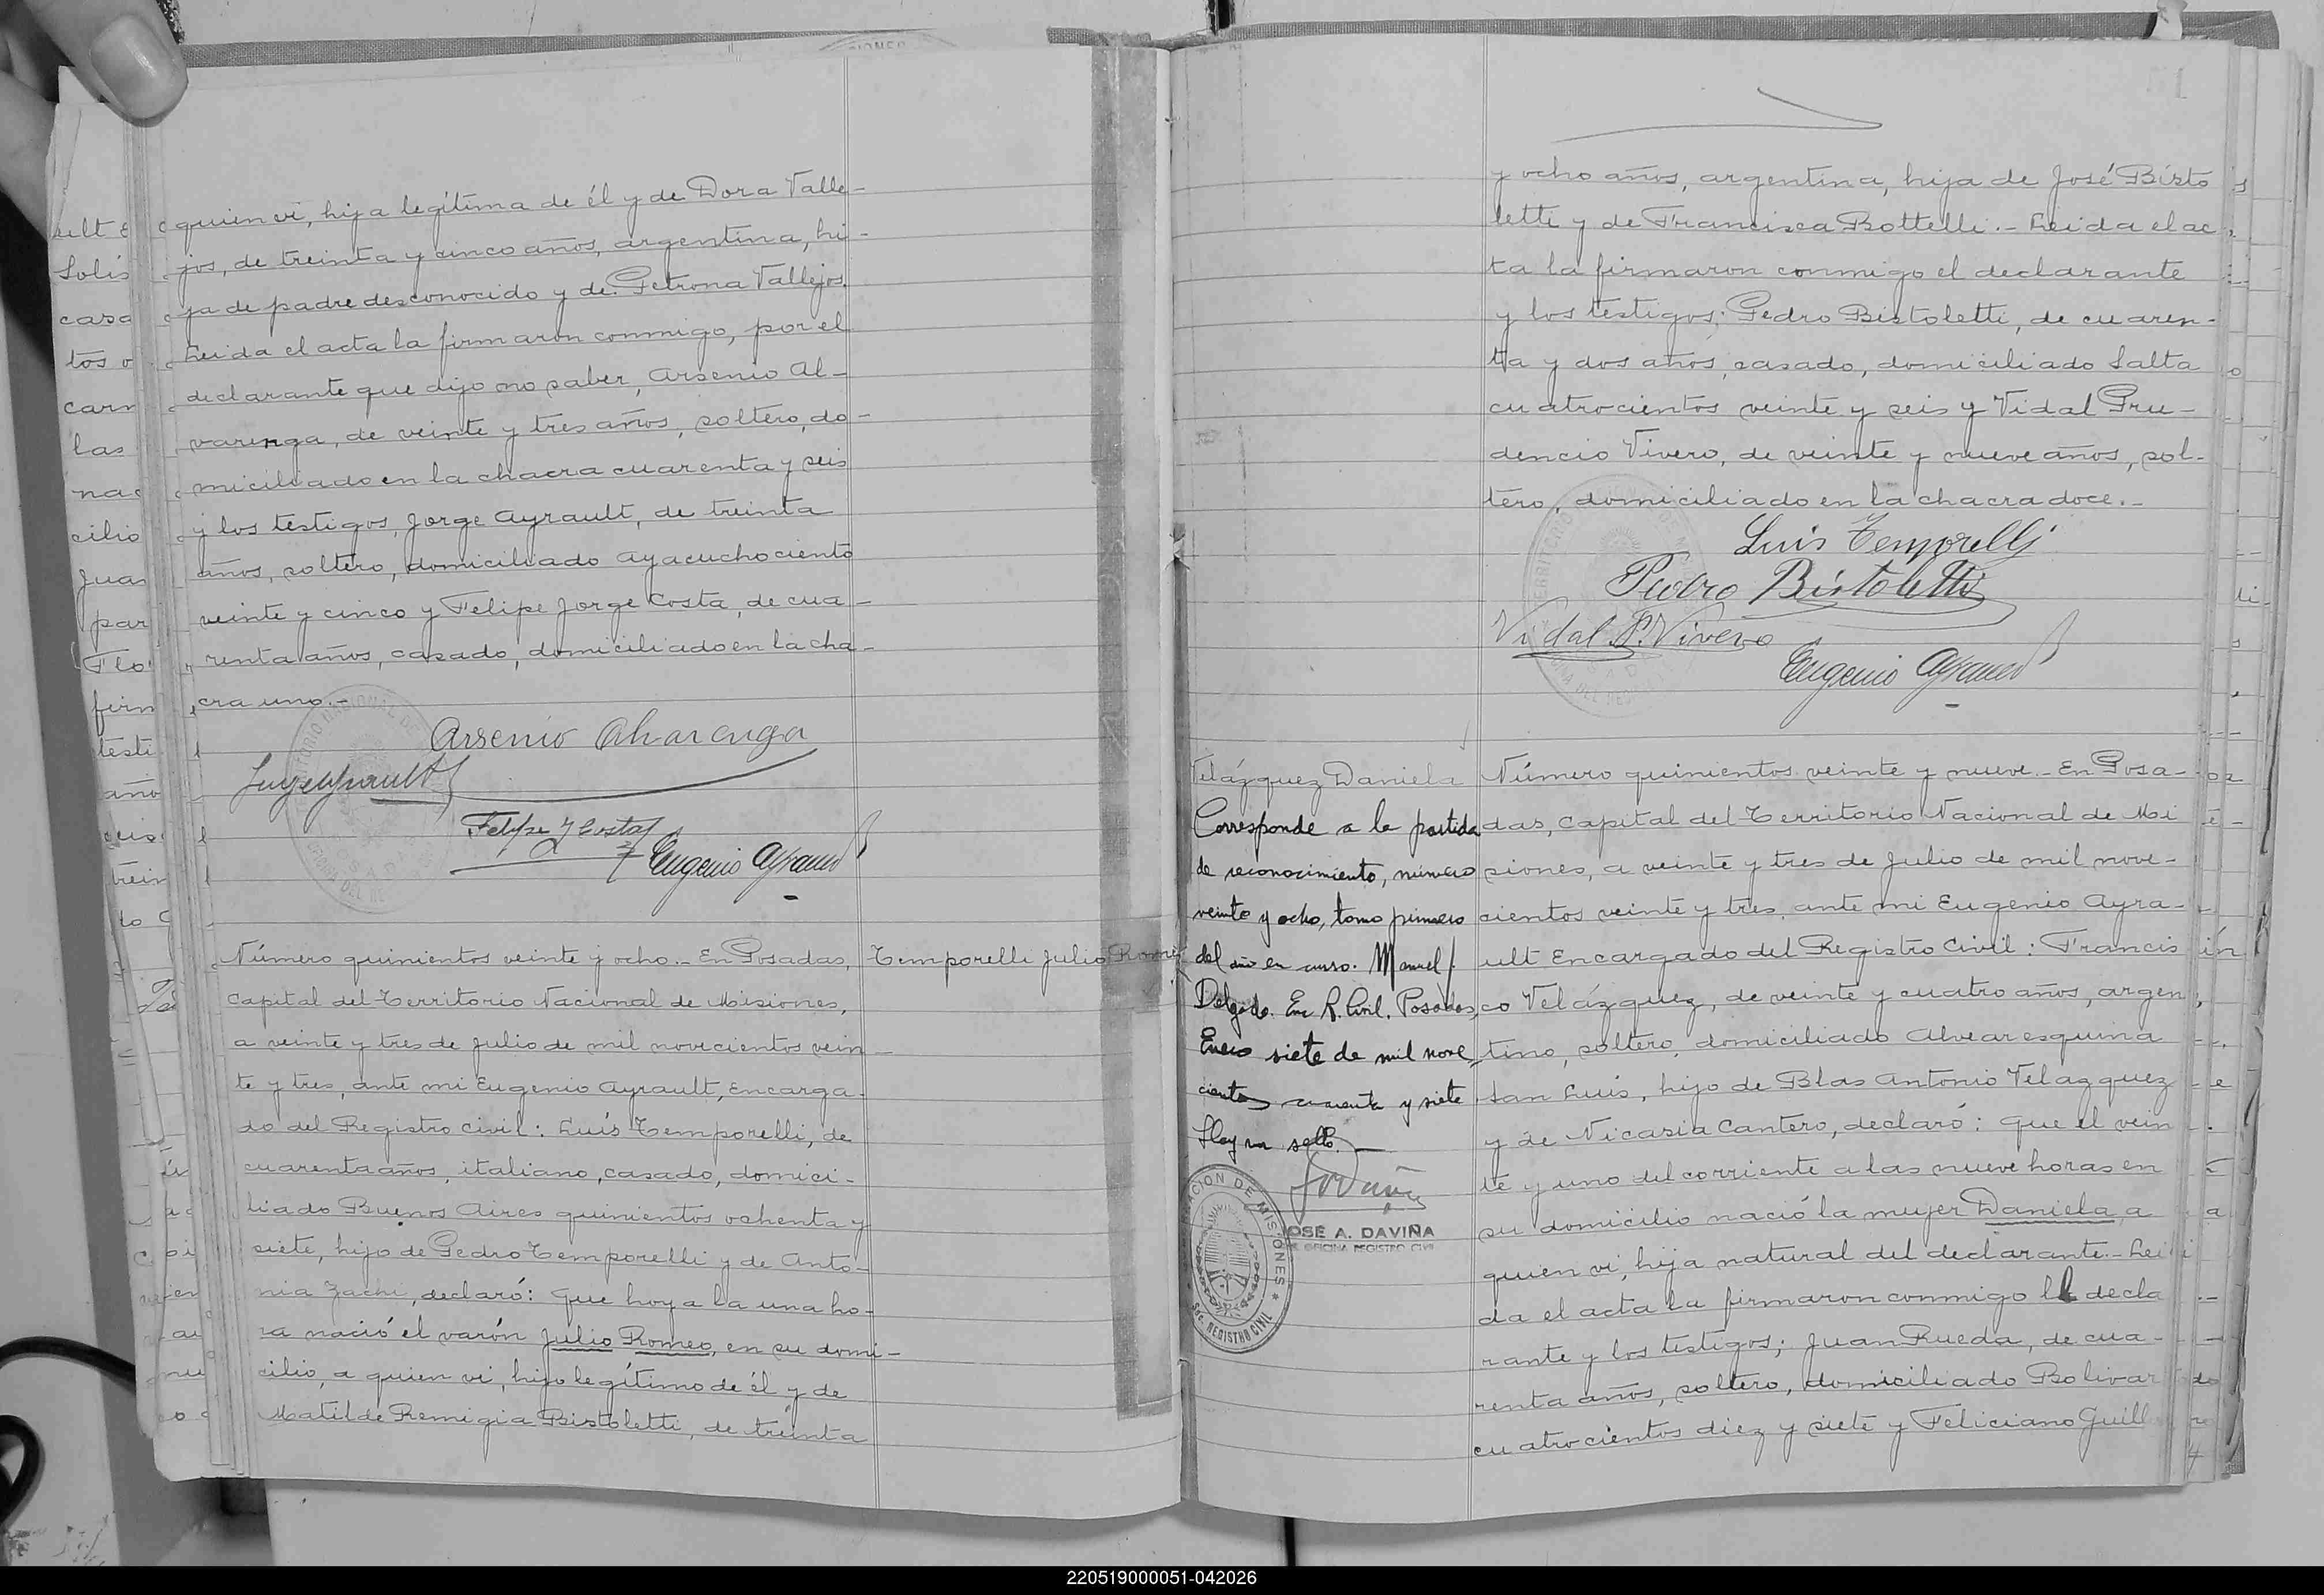 quien vi, hija legítima de él y de Dora Valle-
jos, de treinta y cinco años, argentina, hi-
ja de padre desconocido y de Petrona Vallejos.
Leida el acta la firmaron conmigo, por el
declarante que dijo no saber, Arsenio Al-
varenga, de veinte y tres años, soltero, do-
miciliado en la chacra cuarenta y seis
y los testigos, Jorge Ayrault, de treinta
años, soltero, domiciliado Ayacucho ciento
veinte y cinco y Felipe Jorge Costa, de cua-
renta años, casado, domiciliado en la cha-
cra uno.-
Arsenio Alvarenga
Jorge Ayrault
Felipe J Costa
Eugenio Ayrault
Temporelli Julio Romeo
Número quinientos veinte y ocho.- En Posadas,
Capital del Territorio Nacional de Misiones,
a veinte y tres de Julio de mil novecientos vein-
te y tres, ante mi Eugenio Ayrault, Encarga-
do del Registro Civil: Luís Temporelli, de
cuarenta años, italiano, casado, domici-
liado Buenos Aires quinientos ochenta y
siete, hijo de Pedro Temporelli y de Anto-
nia Zachi, declaró: Que hoy a la una ho-
ra nació el varón Julio Romeo, en su domi-
cilio, a quien vi, hijo legítimo de él y de
Matilde Remigia Bistoletti, de treinta
y ocho años, argentina, hija de José Bisto
letti y de Francisca Bottelli.- Leida el ac
ta la firmaron conmigo el declarante
y los testigos; Pedro Bistoletti, de cuaren-
ta y dos años, casado, domiciliado Salta
cuatrocientos veinte y seis y Vidal Pru-
dencio Vivero, de veinte y nueve años, sol-
tero, domiciliado en la chacra doce.-
Luis Temporelli
Pedro Bistoletti
Vidal P. Vivero
Eugenio Ayrault
Velázquez Daniela
Corresponde a la partida
de reconocimiento, número
veinte y ocho, tomo primero
del año en curso. Manuel J.
Delgado. Enc R. Civil. Posadas,
Enero siete de mil nove
cientos cuarenta y siete
Hay un sello.-
JOSE A. DAVIÑA
OFICINA REGISTRO CIVIL
MISIONES
REGISTRO CIVIL
Número quinientos veinte y nueve.- En Posa-
das, Capital del Territorio Nacional de Mi
siones, a veinte y tres de Julio de mil nove-
cientos veinte y tres, ante mi Eugenio Ayra-
ult Encargado del Registro Civil: Francis
co Velázquez, de veinte y cuatro años, argen
tino, soltero, domiciliado Alvear esquina
San Luís, hijo de Blas Antonio Velazquez
y de Nicasia Cantero, declaró: Que el vein
te y uno del corriente a las nueve horas en
su domicilio nació la mujer Daniela, a
quien vi, hija natural del declarante.- Lei
da el acta la firmaron conmigo el decla
rante y los testigos; Juan Rueda, de cua-
renta años, soltero, domiciliado Bolivar
cuatrocientos diez y siete y Feliciano Guill
220519000051-042026